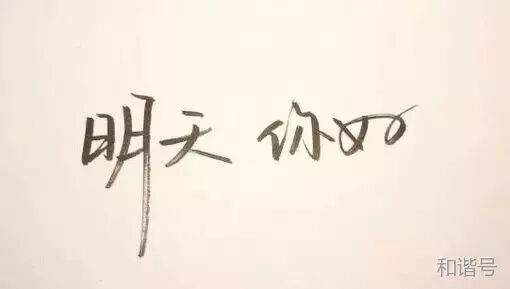 明天 你好
和谐号